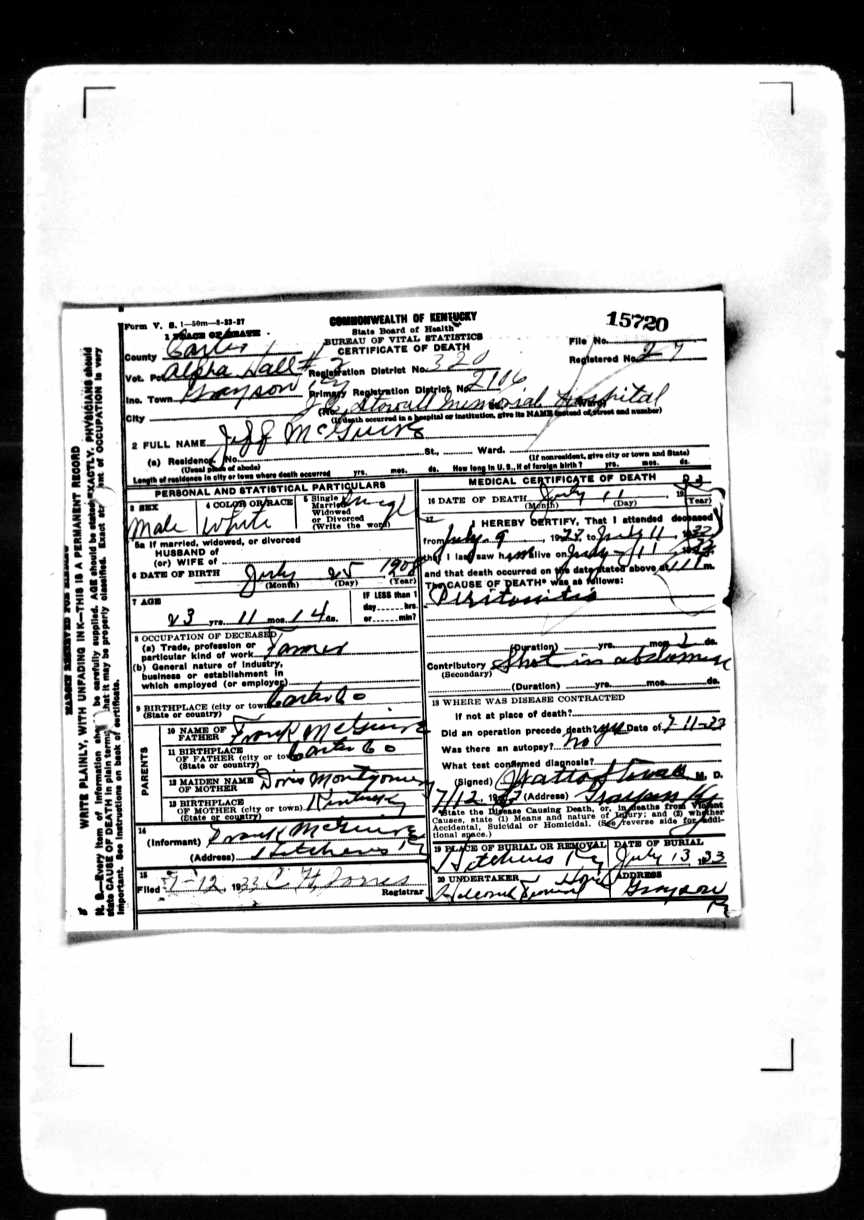 15720
Form V. S. 1—50m—8-23-27
COMMONWEALTH OF KENTUCKY
State Board of Health
BUREAU OF VITAL STATISTICS
CERTIFICATE OF DEATH
File No.
Registered No. 27
1 PLACE OF DEATH
County Carter
Vot. Pct. Alpha Hall # 2
Registration District No. 320
Inc. Town Grayson Ky
Primary Registration District No. 2106
City
(No. Stovall Memorial Hospital
(If death occurred in a hospital or institution, give its NAME instead of street and number)
2 FULL NAME Jeff McGuire
(a) Residence. No. St., Ward.
(Usual place of abode) (If nonresident, give city or town and State)
Length of residence in city or town where death occurred yrs. mos. ds. How long in U. S., if of foreign birth? yrs. mos. ds.
PERSONAL AND STATISTICAL PARTICULARS
3 SEX Male
4 COLOR OR RACE White
5 Single Married Widowed or Divorced (Write the word) Singl
5a If married, widowed, or divorced
HUSBAND of
(or) WIFE of
6 DATE OF BIRTH July 25 1908
(Month) (Day) (Year)
7 AGE
23 yrs. 11 mos. 14 ds.
IF LESS than 1
day hrs.
or min?
8 OCCUPATION OF DECEASED
(a) Trade, profession or
particular kind of work Farmer
(b) General nature of industry,
business or establishment in
which employed (or employer)
9 BIRTHPLACE (city or town) Carter Co
(State or country)
PARENTS
10 NAME OF
FATHER Frank McGuire
11 BIRTHPLACE
OF FATHER (city or town) Carter Co
(State or country)
12 MAIDEN NAME
OF MOTHER Doris Montgomery
13 BIRTHPLACE
OF MOTHER (city or town) Kentucky
(State or country)
14
(Informant) Frank McGuire
(Address) Hitchins Ky
15
Filed 7-12, 1933 C H Jones
Registrar
MEDICAL CERTIFICATE OF DEATH
16 DATE OF DEATH July 11 19 33
(Month) (Day) (Year)
17
I HEREBY CERTIFY, That I attended deceased
from July 9, 19 to July 11,
that I last saw him alive on July 11
and that death occurred on the date stated above at m.
The CAUSE OF DEATH* was as follows:
Peritonitis
(Duration) yrs. mos. 2 ds.
Contributory Shot in abdomen
(Secondary)
(Duration) yrs. mos. ds.
18 WHERE WAS DISEASE CONTRACTED
If not at place of death?
Did an operation precede death? yes Date of 7-11-33
Was there an autopsy? No
What test confirmed diagnosis?
(Signed) Stovall M. D.
7/12, 1933 (Address) Grayson Ky
*State the Disease Causing Death, or, in deaths from Violent
Causes, state (1) Means and nature of Injury; and (2) whether
Accidental, Suicidal or Homicidal. (See reverse side for addi-
tional space.)
19 PLACE OF BURIAL OR REMOVAL Hitchins Ky
DATE OF BURIAL July 13, 33
20 UNDERTAKER
ADDRESS Grayson Ky
MARGIN RESERVED FOR BINDING
WRITE PLAINLY, WITH UNFADING INK—THIS IS A PERMANENT RECORD
N. B.—Every item of information should be carefully supplied. AGE should be stated EXACTLY. PHYSICIANS should
state CAUSE OF DEATH in plain terms that it may be properly classified. Exact statement of OCCUPATION is very
important. See instructions on back of certificate.